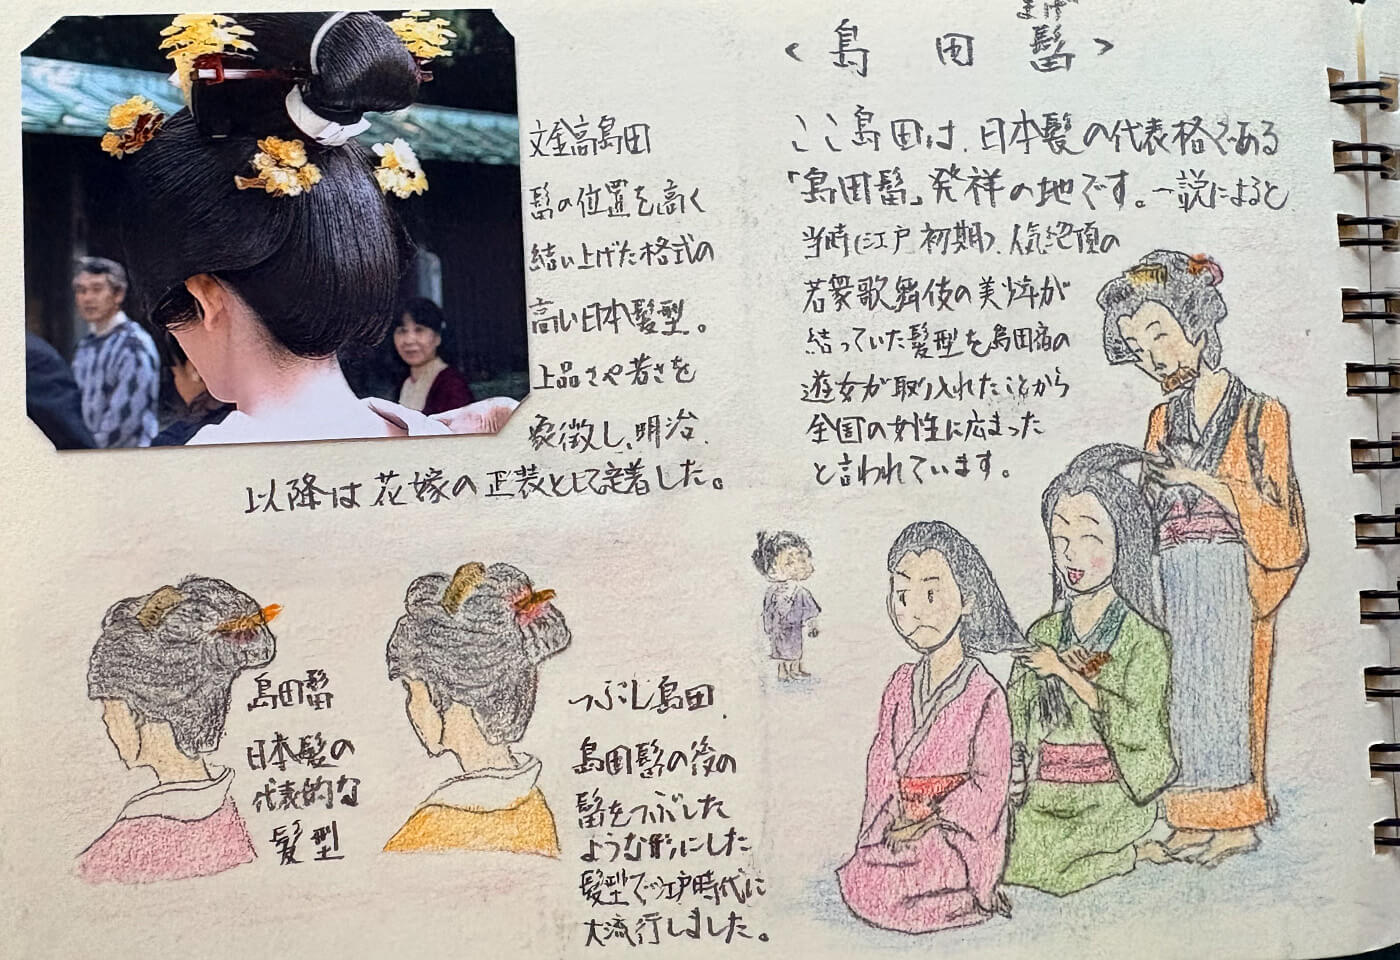 文金高島田
髷の位置を高く
結い上げた格式の
高い日本髪型。
上品さや若さを
象徴し、明治
以降は花嫁の正装として定着した。
島田髷
日本髪の
代表的な
髪型
つぶし島田
島田髷の後の
髷をつぶした
ような形にした
髪型で江戸時代に
大流行しました。
まげ
〈島田髷〉
ここ島田は、日本髪の代表格である
「島田髷」発祥の地です。一説によると
当時(江戸初期)、人気絶頂の
若衆歌舞伎の美粋が
結っていた髪型を島田宿の
遊女が取り入れたことから
全国の女性に広まった
と言われています。